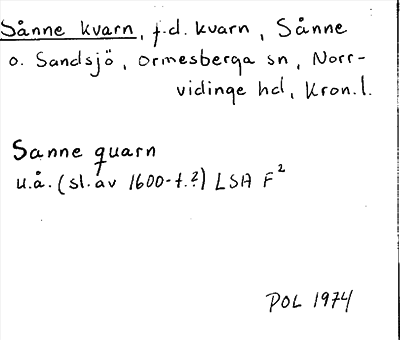 Sånne kvarn, f.d. kvarn, Sånne
o. Sandsjö, Ormesberga sn, Norr-
vidinge hd, Kron.l.
Sanne quarn
u.å. (sl. av 1600-t.?) LSA F²
POL 1974